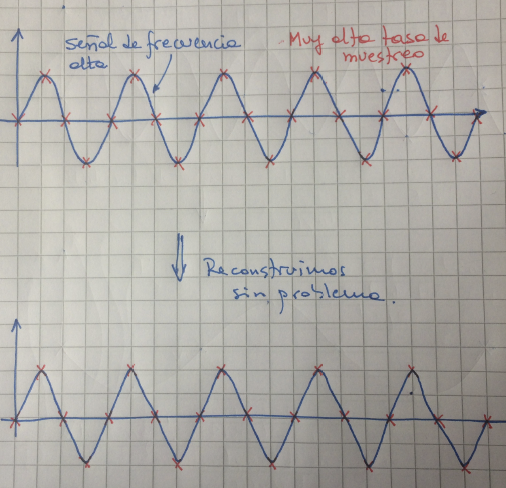 Señal de frecuencia
alta
Muy alta tasa de
muestreo
Reconstruimos
sin problema.